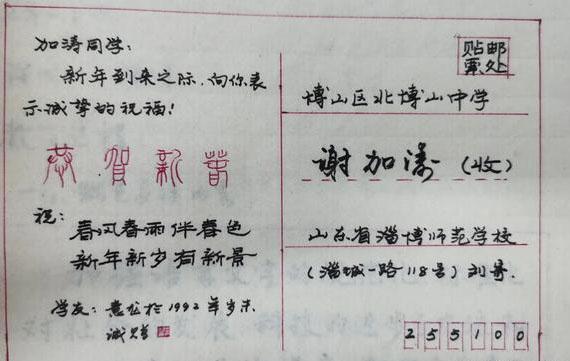 加涛同学：
新年到来之际，向你表
示诚挚的祝福！
恭贺新春
祝：
春风春雨伴春色
新年新岁有新景
学友：
于1992年岁末
诚贺
贴邮
票处
博山区北博山中学
谢加涛（收）
山东省淄博师范学校
（淄城一路118号）刘寄.
255100